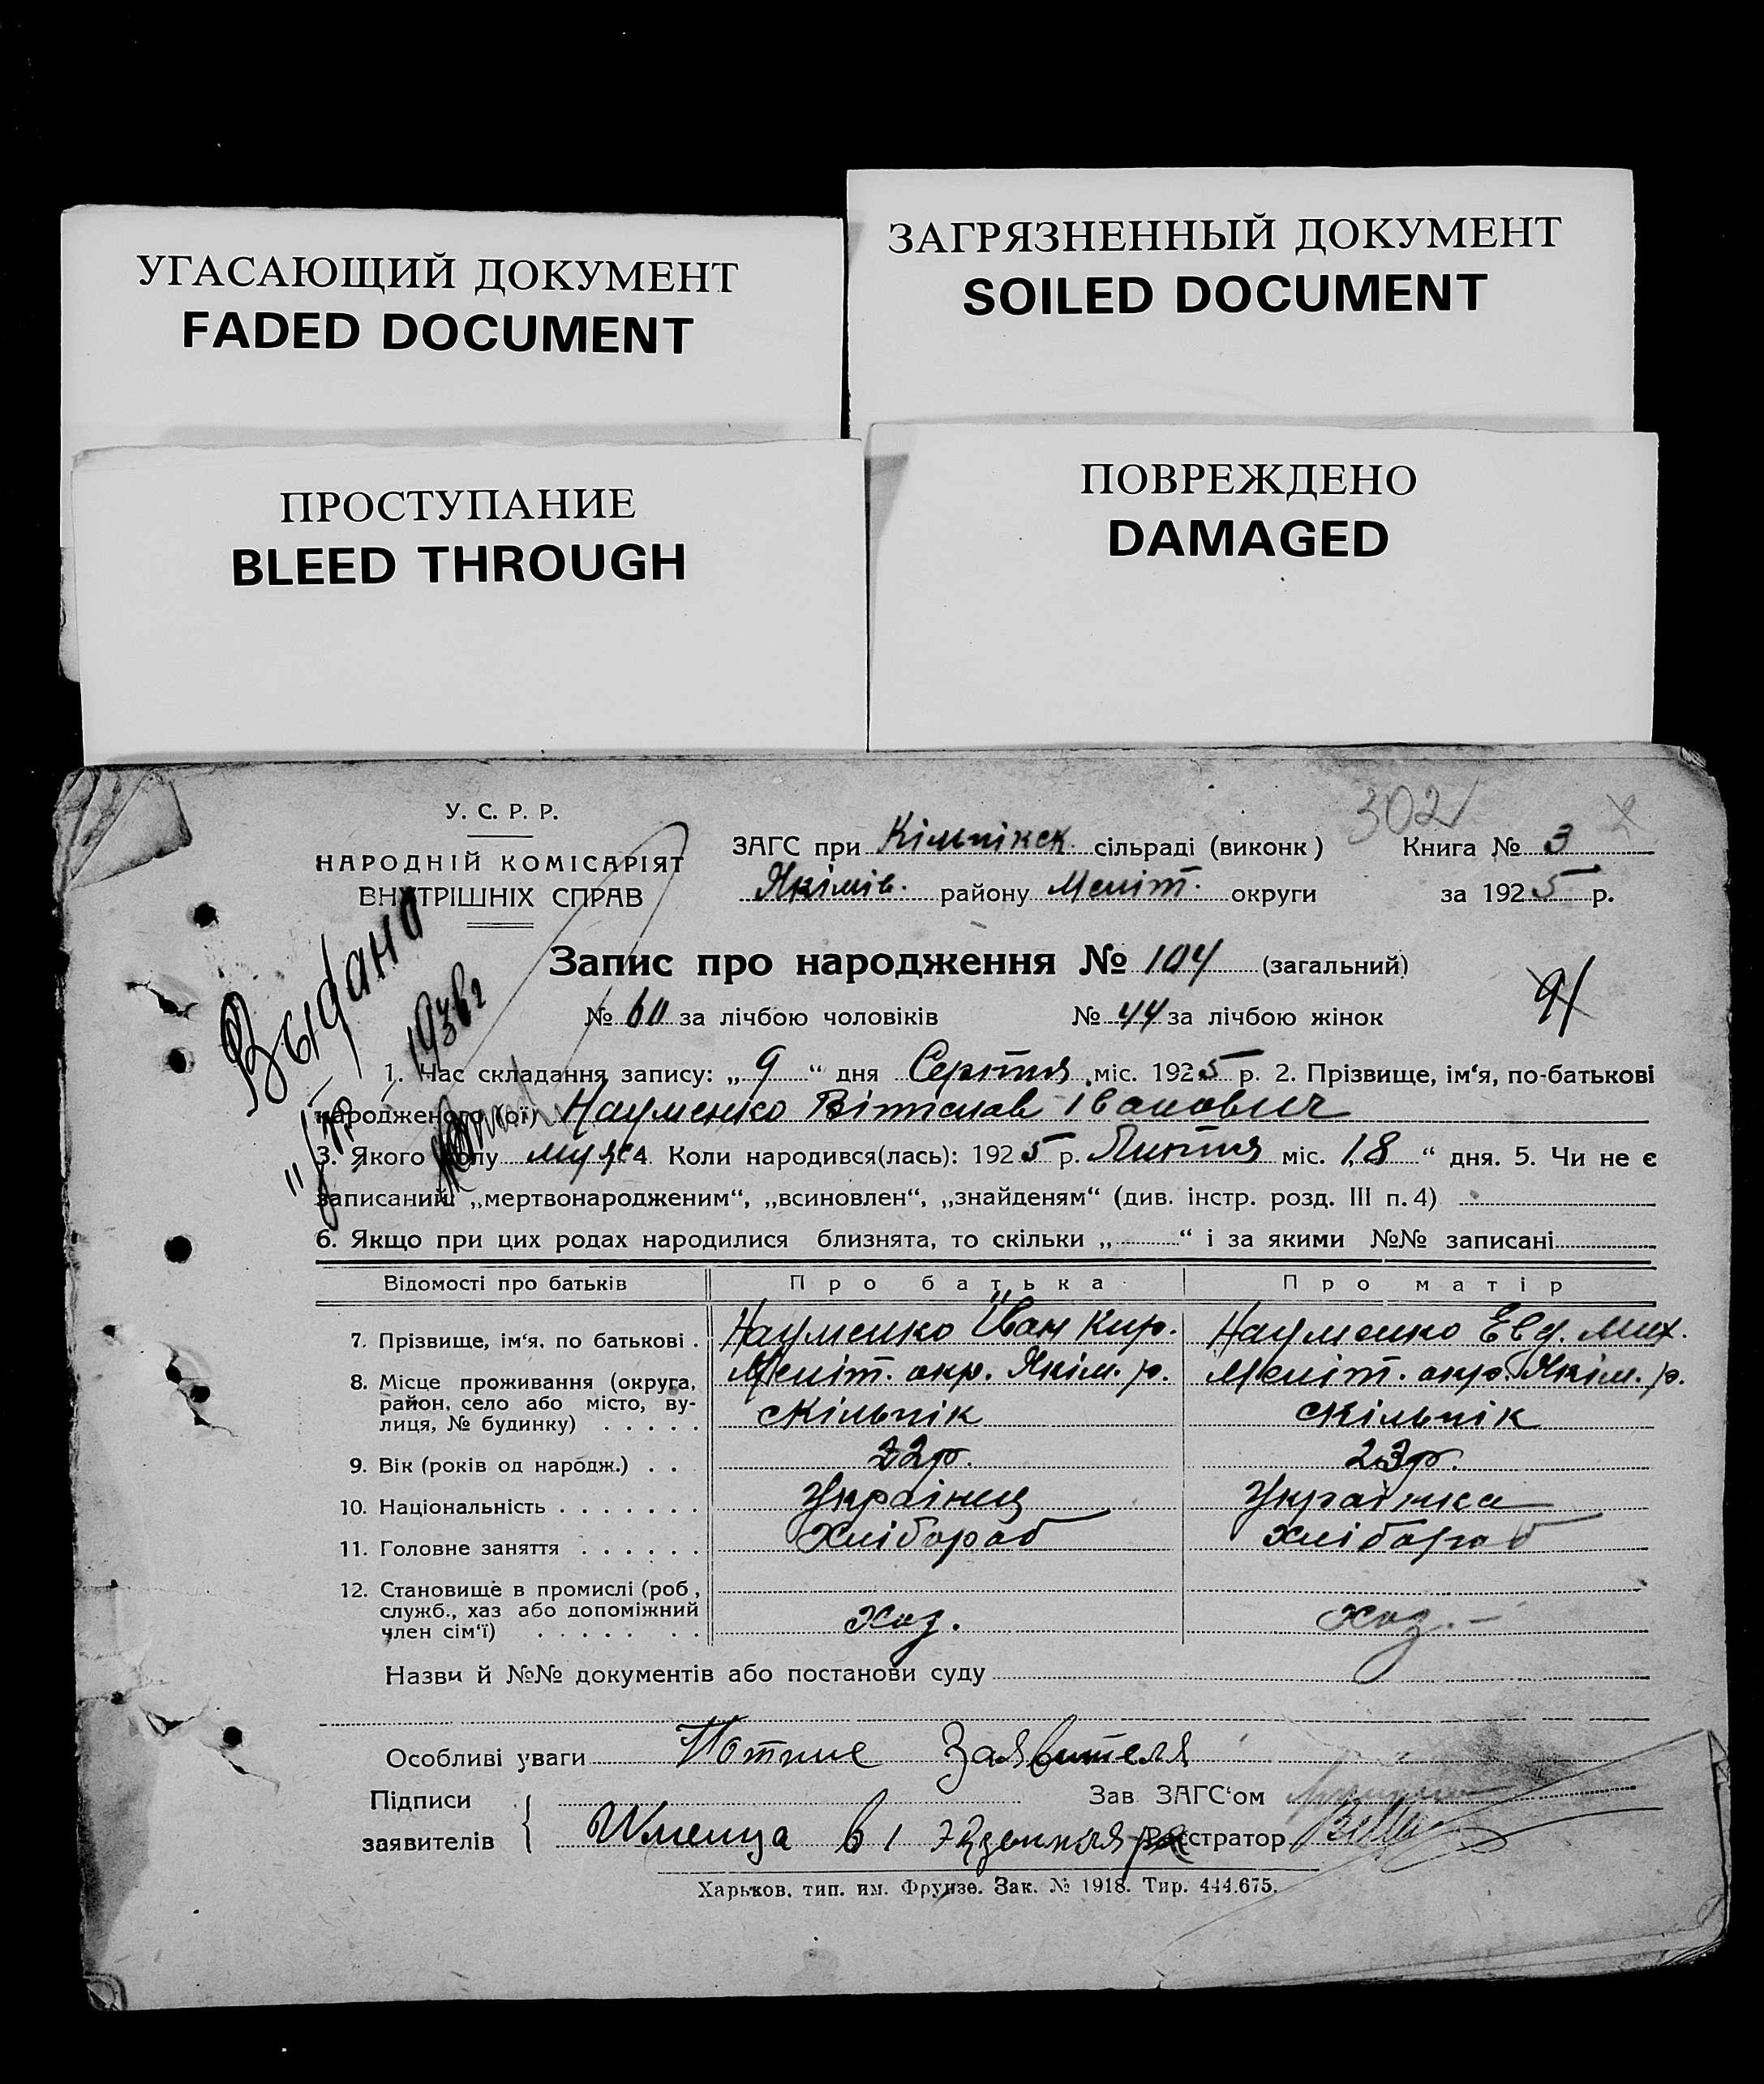 УГАСАЮЩИЙ ДОКУМЕНТ
FADED DOCUMENT
ЗАГРЯЗНЕННЫЙ ДОКУМЕНТ
SOILED DOCUMENT
ПРОСТУПАНИЕ
BLEED THROUGH
ПОВРЕЖДЕНО
DAMAGED
302
У. С. Р. Р.
НАРОДНІЙ КОМІСАРІЯТ
ВНУТРІШНІХ СПРАВ
ЗАГС при Кільпікск сільраді (виконк) Книга № 3
Якімів. району Меліт. округи за 1925 р.
Выдано
1936 г
Запис про народження № 104 (загальний)
91
№ 60 за лічбою чоловіків № 44 за лічбою жінок
1. Час складання запису: „ 9 “ дня Серпня міс. 1925 р. 2. Прізвище, ім‘я, по-батькові
народженого (ої) Науменко Вітіслав Іванович
3. Якого полу муж 4 Коли народився(лась): 1925 р. Липня міс. 18 “ дня. 5. Чи не є
записаний: „мертвонародженим“, „всиновлен“, „знайденям“ (див. інстр. розд. III п. 4)
6. Якщо при цих родах народилися близнята, то скільки „ “ і за якими №№ записані
Відомості про батьків Про батька Про матір
7. Прізвище, ім‘я, по батькові . Науменко Іван Кир. Науменко Евд. Мих.
8. Місце проживання (округа, Меліт. окр. Якім. р. Меліт. окр. Якім. р.
район, село або місто, ву-
лиця, № будинку) . . . . . с Кільпік с Кільпік
9. Вік (років од народж.) . . 22 р. 23 р.
10. Національність . . . . . . . Українец Українка
11. Головне заняття . . . . . . Хлібороб хлібороб
12. Становище в промислі (роб,
служб., хаз або допоміжний
член сім‘ї) . . . . . . . хаз. хаз. –
Назви й №№ документів або постанови суду
Особливі уваги Потпис Заявителя
Підписи Зав ЗАГС‘ом
заявителів Имеица в 1 Реєстратор
Харьков. тип. им. Фрунзе. Зак. № 1918. Тир. 444.675.